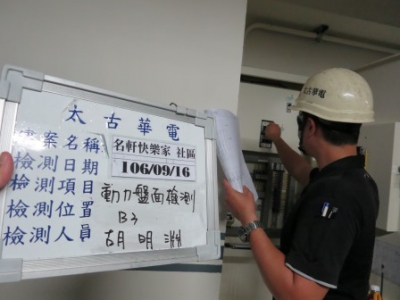 太古華電
檔案名稱 名軒快樂家 社區
檢測日期 106/09/16
檢測項目 動力盤面檢測
檢測位置 B3
檢測人員 胡明
太古華電